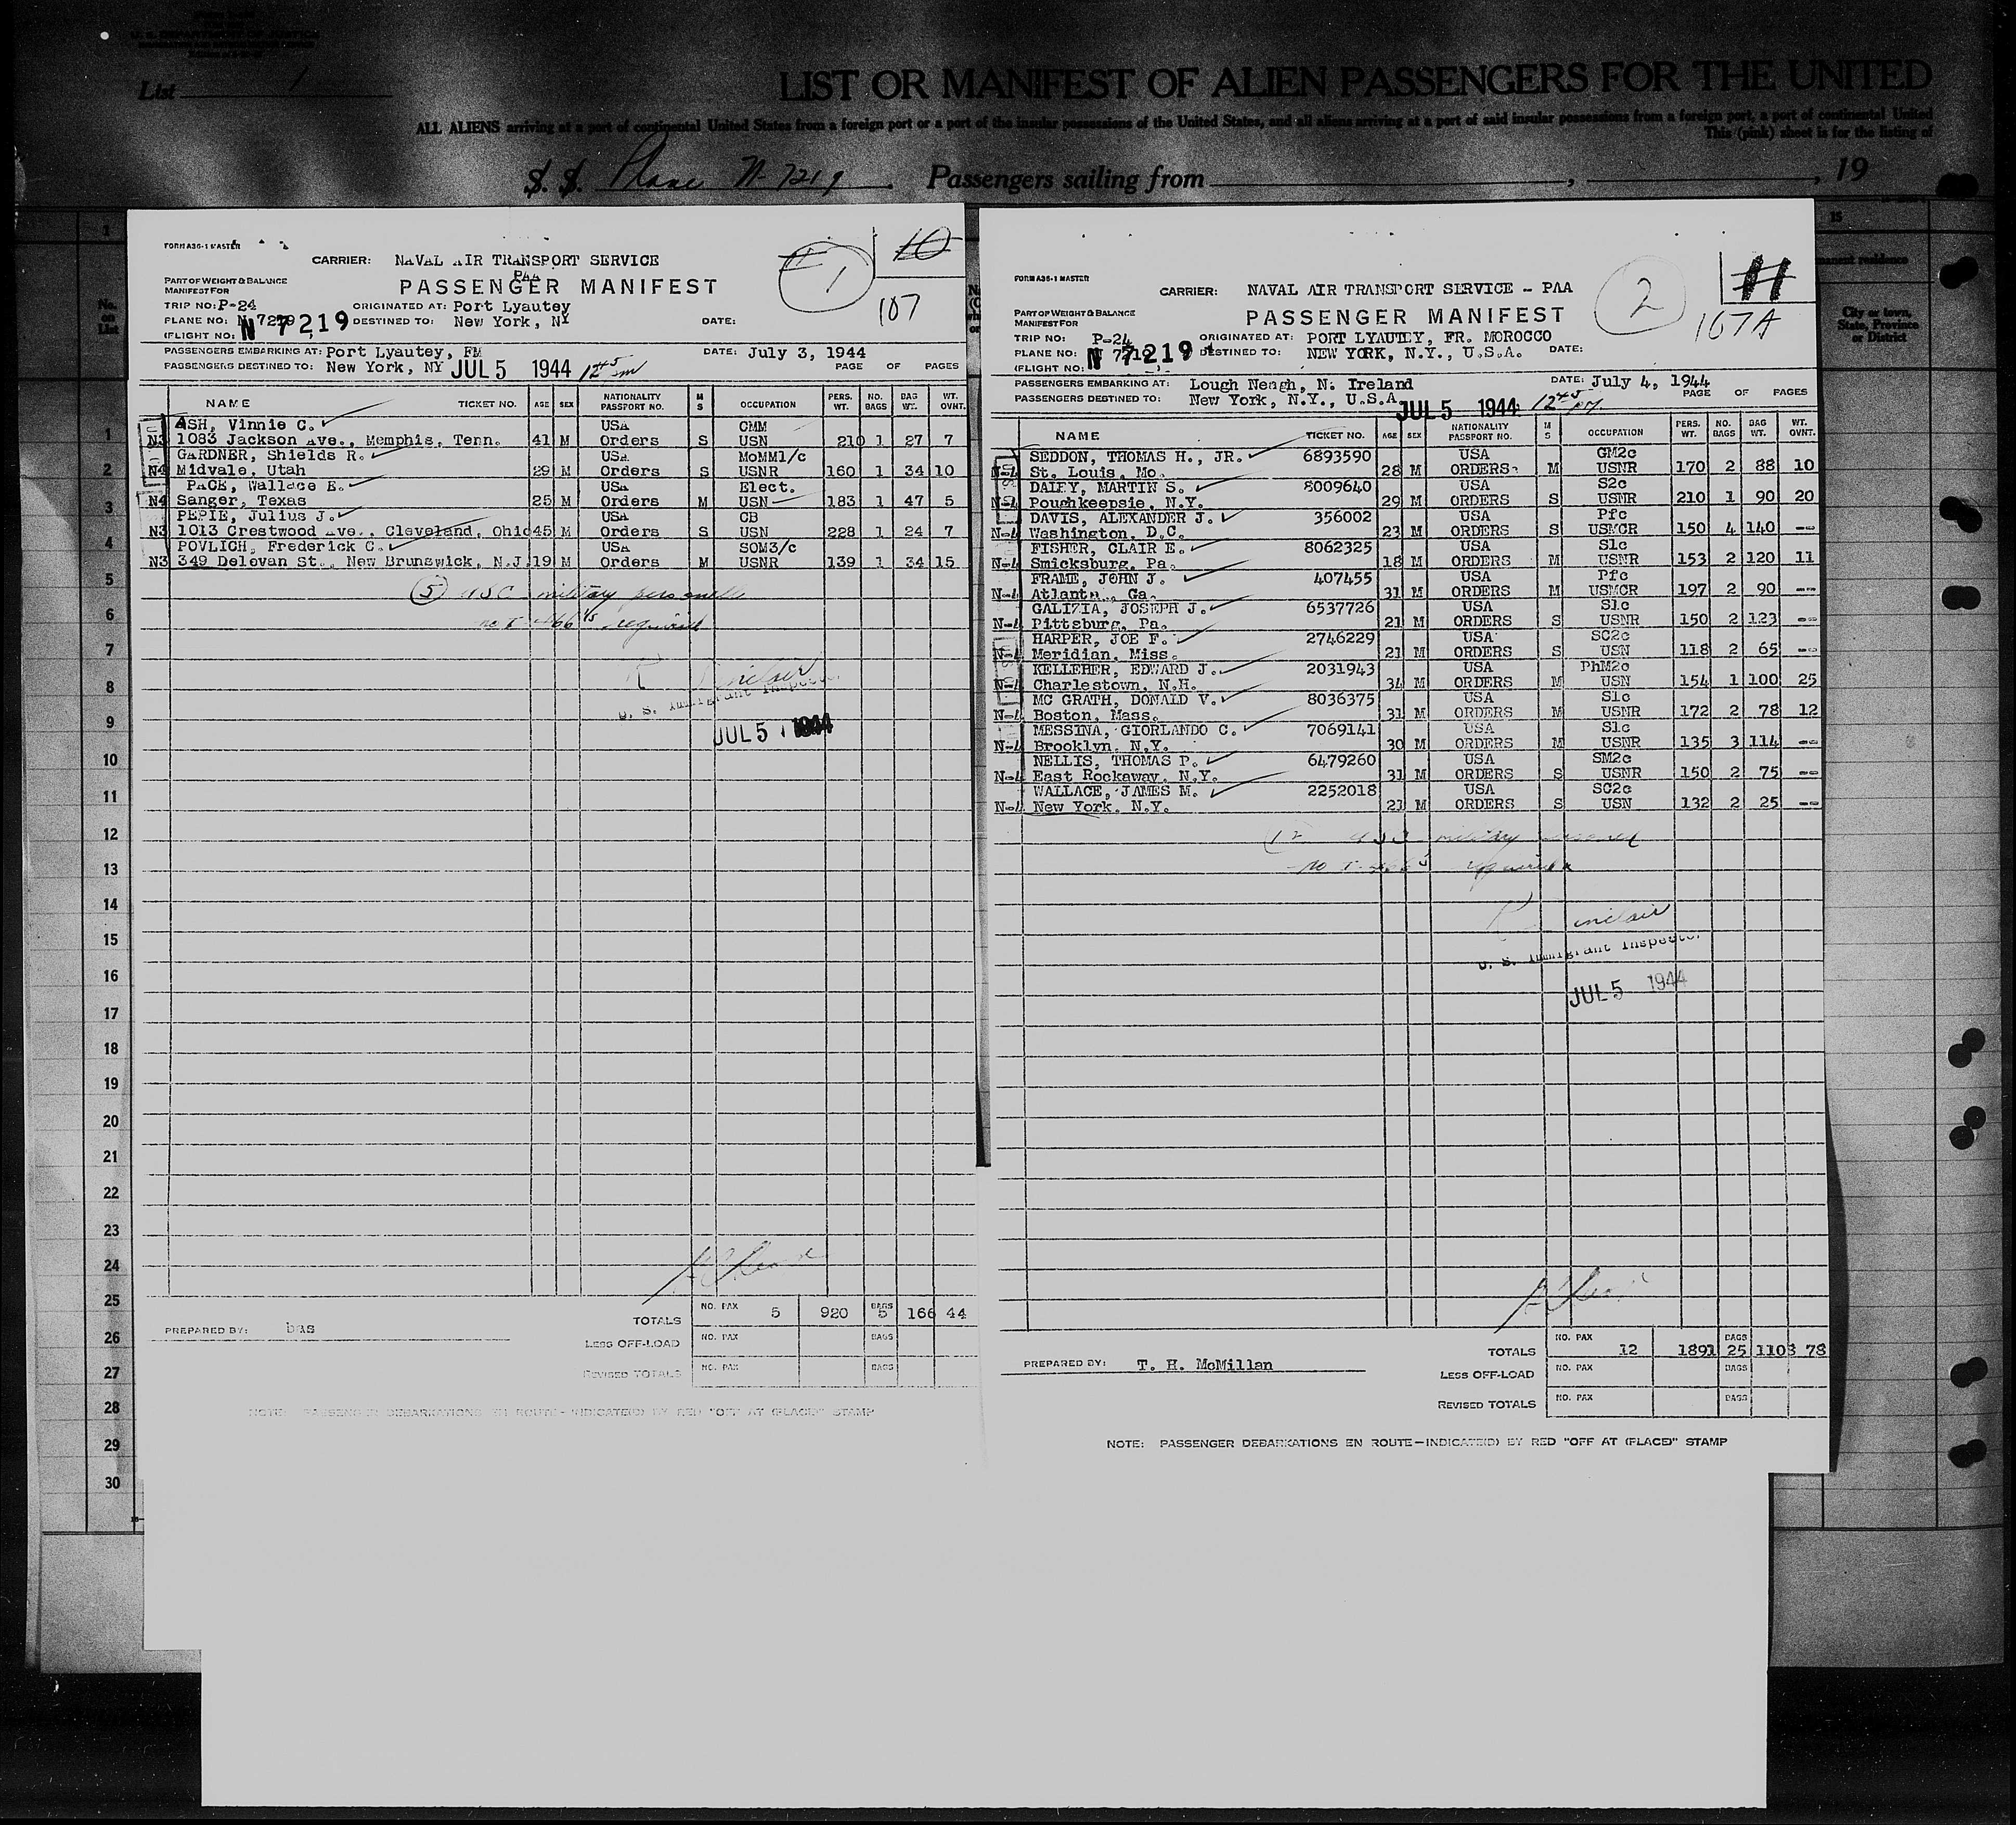 U. S. DEPARTMENT OF JUSTICE
List 1
LIST OR MANIFEST OF ALIEN PASSENGERS FOR THE UNITED
ALL ALIENS arriving at a port of continental United States from a foreign port or a port of the insular possessions of the United States, and all aliens arriving at a port of said insular possessions from a foreign port, a port of continental United
This (pink) sheet is for the listing of
S. S. Plane N-7219. Passengers sailing from , , 19
1
No. on List
1
2
3
4
5
6
7
8
9
10
11
12
13
14
15
16
17
18
19
20
21
22
23
24
25
26
27
28
29
30
FORM A36-1 MASTER
CARRIER: NAVAL AIR TRANSPORT SERVICE
PAA
1 10
PART OF WEIGHT & BALANCE
MANIFEST FOR
PASSENGER MANIFEST
107
TRIP NO: P-24 ORIGINATED AT: Port Lyautey
PLANE NO: N 7219 DESTINED TO: New York, NY DATE:
(FLIGHT NO:
PASSENGERS EMBARKING AT: Port Lyautey, FM DATE: July 3, 1944
PASSENGERS DESTINED TO: New York, NY JUL 5 1944 12 45 PAGE OF PAGES
NAME TICKET NO. AGE SEX NATIONALITY PASSPORT NO. M S OCCUPATION PERS. WT. NO. BAGS BAG WT. WT. OVNT.
ASH, Vinnie C. USA CMM
N3 1083 Jackson Ave., Memphis, Tenn. 41 M Orders S USN 210 1 27 7
GARDNER, Shields R. USA MoMM1/c
N4 Midvale, Utah 29 M Orders S USNR 160 1 34 10
PACE, Wallace E. USA Elect.
N4 Sanger, Texas 25 M Orders M USN 183 1 47 5
PEPIE, Julius J. USA CB
N3 1013 Crestwood Ave., Cleveland, Ohio 45 M Orders S USN 228 1 24 7
POVLICH, Frederick C. USA SOM3/c
N3 349 Delovan St., New Brunswick, N.J. 19 M Orders M USNR 139 1 34 15
(5) USC military personnel
no I-466's required
Sinclair
U. S. Immigrant Inspector
JUL 5 1944
TOTALS NO. PAX 5 920 BAGS 5 166 44
PREPARED BY: bas
LESS OFF-LOAD NO. PAX BAGS
REVISED TOTALS NO. PAX BAGS
NOTE: PASSENGER DEBARKATIONS EN ROUTE-INDICATE(D) BY RED "OFF AT (PLACE)" STAMP
FORM A36-1 MASTER
CARRIER: NAVAL AIR TRANSPORT SERVICE - PAA
2 11
PART OF WEIGHT & BALANCE
MANIFEST FOR
PASSENGER MANIFEST
107A
TRIP NO: P-24 ORIGINATED AT: PORT LYAUTEY, FR. MOROCCO
PLANE NO: N 7219 DESTINED TO: NEW YORK, N.Y., U.S.A. DATE:
(FLIGHT NO:
PASSENGERS EMBARKING AT: Lough Neagh, N. Ireland DATE: July 4, 1944
PASSENGERS DESTINED TO: New York, N.Y., U.S.A. JUL 5 1944 12 45 PM. PAGE OF PAGES
NAME TICKET NO. AGE SEX NATIONALITY PASSPORT NO. M S OCCUPATION PERS. WT. NO. BAGS BAG WT. WT. OVNT.
SEDDON, THOMAS H., JR. 6893590 USA GM2c
N-4 St. Louis, Mo. 28 M ORDERS M USNR 170 2 88 10
DALEY, MARTIN S. 8009640 USA S2c
N-4 Poughkeepsie, N.Y. 29 M ORDERS S USNR 210 1 90 20
DAVIS, ALEXANDER J. 356002 USA Pfc
N-4 Washington, D.C. 23 M ORDERS S USMCR 150 4 140 --
FISHER, CLAIR E. 8062325 USA S1c
N-4 Smicksburg, Pa. 18 M ORDERS M USNR 153 2 120 11
FRAME, JOHN J. 407455 USA Pfc
N-4 Atlanta, Ga. 31 M ORDERS M USMCR 197 2 90 --
GALIZIA, JOSEPH J. 6537726 USA S1c
N-4 Pittsburg, Pa. 21 M ORDERS S USNR 150 2 123 --
HARPER, JOE F. 2746229 USA SC2c
N-4 Meridian, Miss. 21 M ORDERS S USN 118 2 65 --
KELLEHER, EDWARD J. 2031943 USA PhM2c
N-4 Charlestown, N.H. 34 M ORDERS M USN 154 1 100 25
MC GRATH, DONALD V. 8036375 USA S1c
N-4 Boston, Mass. 31 M ORDERS M USNR 172 2 78 12
MESSINA, GIORLANDO C. 7069141 USA S1c
N-4 Brooklyn, N.Y. 30 M ORDERS M USNR 135 3 114 --
NELLIS, THOMAS P. 6479260 USA SM2c
N-4 East Rockaway, N.Y. 31 M ORDERS S USNR 150 2 75 --
WALLACE, JAMES M. 2252018 USA SC2c
N-4 New York, N.Y. 21 M ORDERS S USN 132 2 25 --
(12 USC military personnel
no I-466's required
Sinclair
U. S. Immigrant Inspector
JUL 5 1944
TOTALS NO. PAX 12 1891 BAGS 25 1108 78
PREPARED BY: T. H. McMillan
LESS OFF-LOAD NO. PAX BAGS
REVISED TOTALS NO. PAX BAGS
NOTE: PASSENGER DEBARKATIONS EN ROUTE-INDICATE(D) BY RED "OFF AT (PLACE)" STAMP
15
permanent residence
City or town, State, Province or District